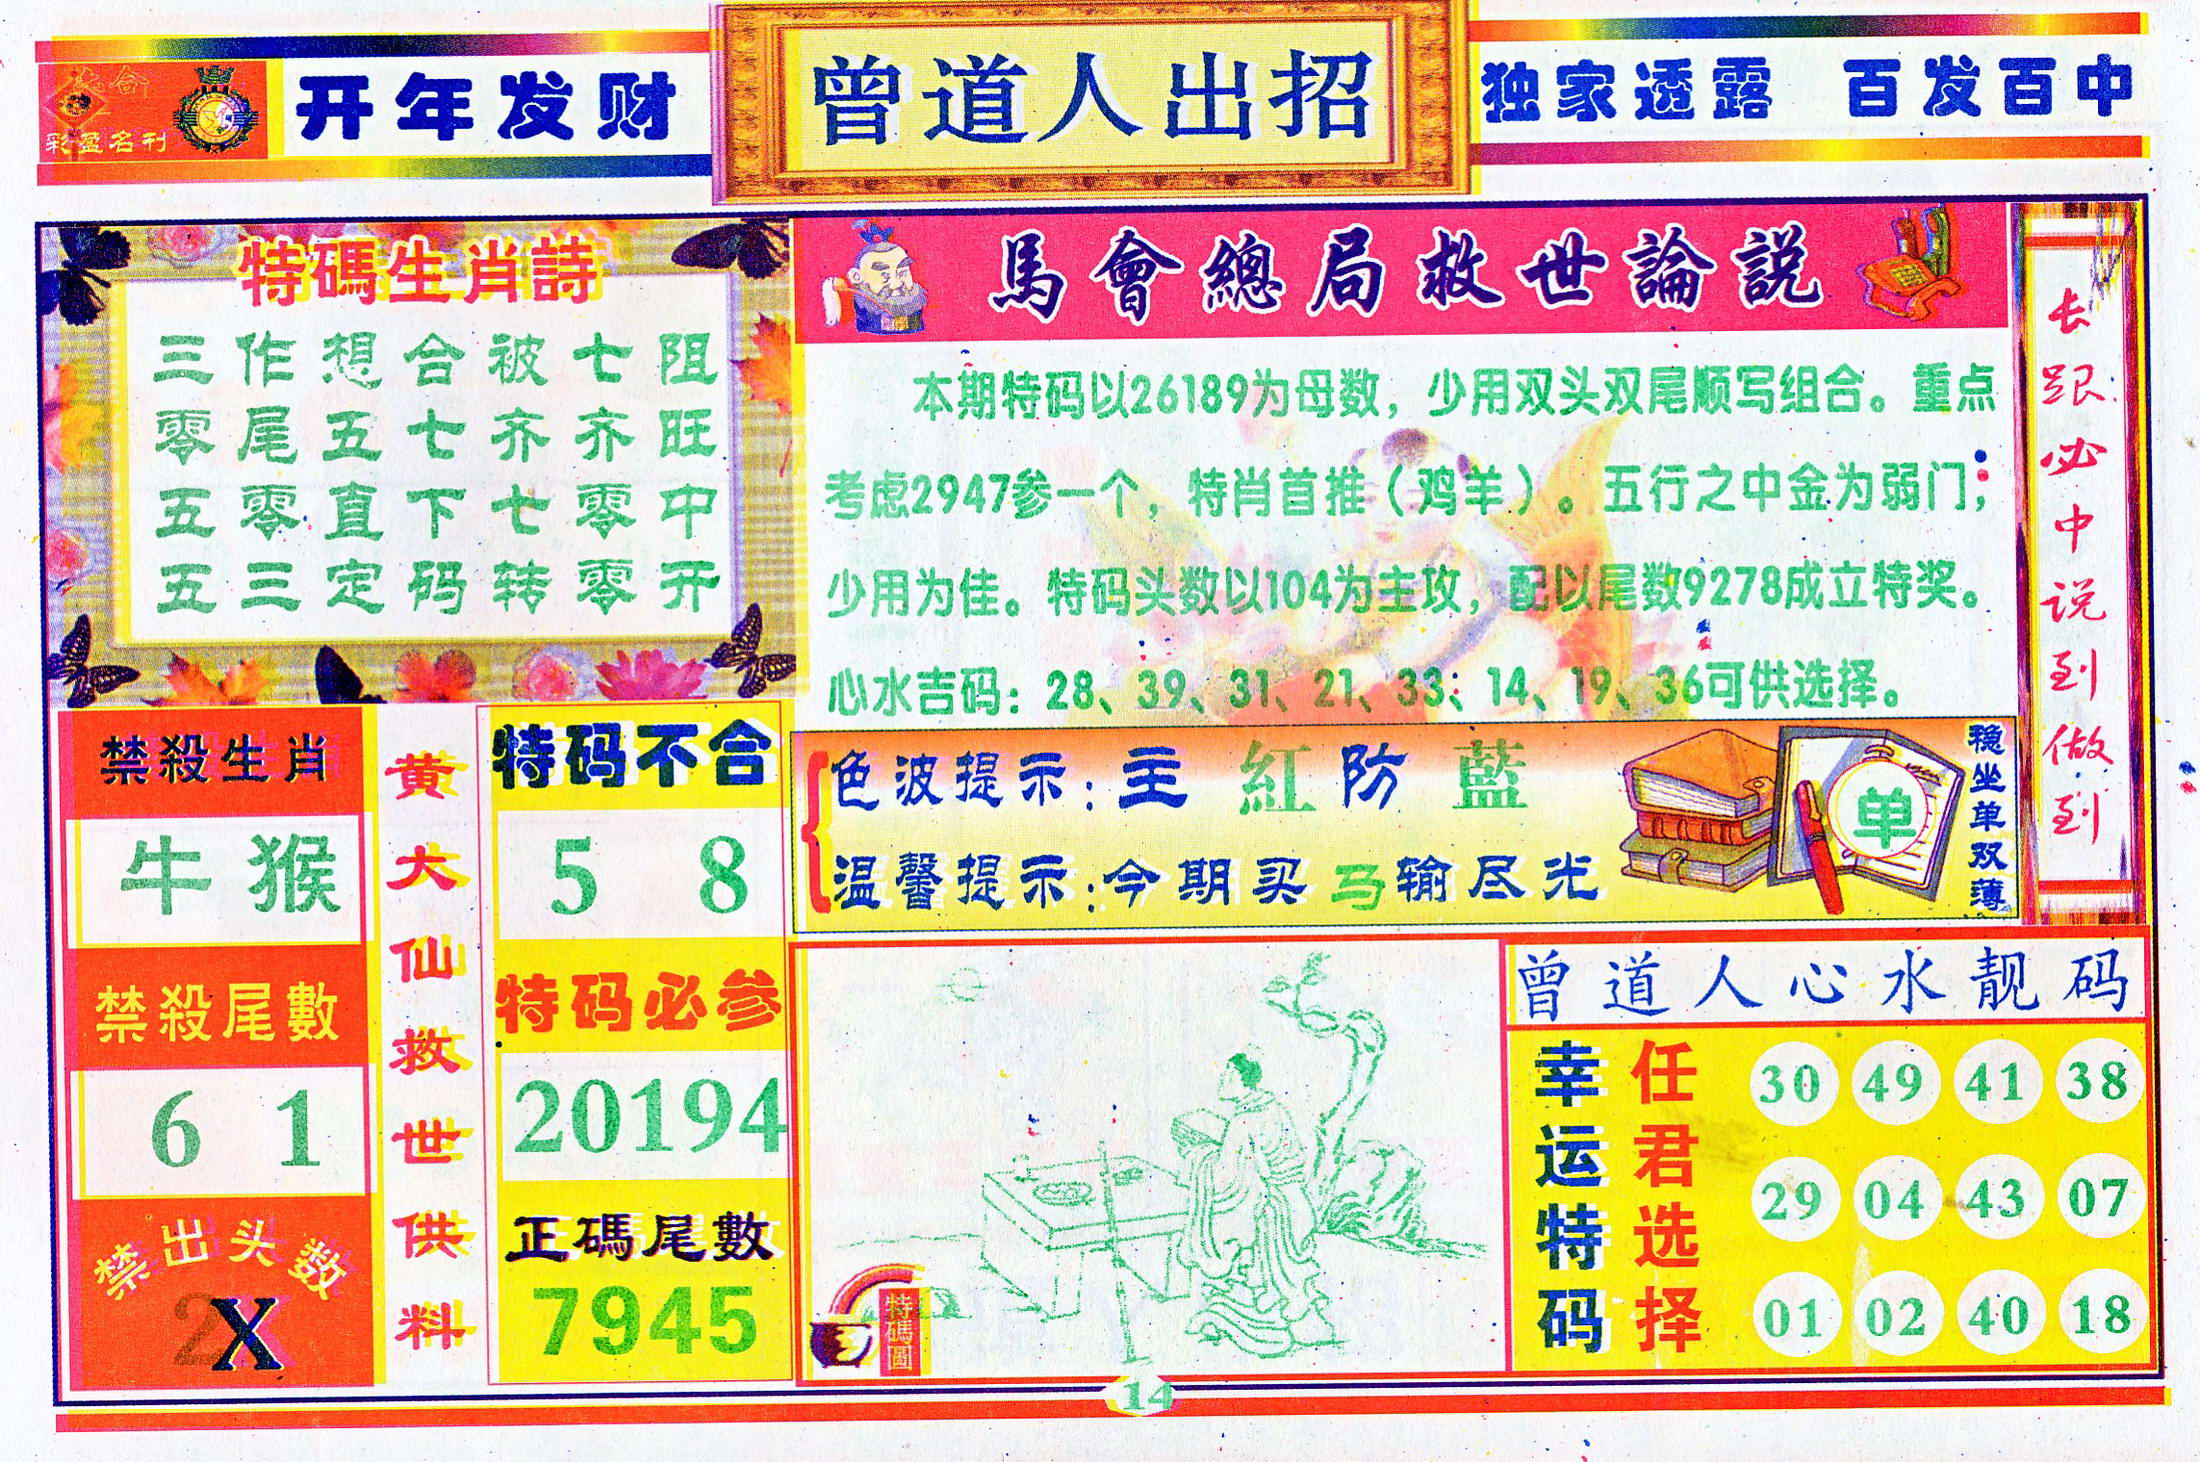 彩盈名刊
开年发财
曾道人出招
独家透露 百发百中
特碼生肖詩
三作想合被七阻
零尾五七齐齐旺
五零直下七零中
五三定码转零开
馬會總局救世論説
本期特码以26189为母数，少用双头双尾顺写组合。重点
考虑2947参一个，特肖首推（鸡羊）。五行之中金为弱门；
少用为佳。特码头数以104为主攻，配以尾数9278成立特奖。
心水吉码：28、39、31、21、33；14、19、36可供选择。
长跟必中说到做到
色波提示：主紅防藍
温馨提示：今期买马输尽光
单
稳坐单双薄
禁殺生肖
牛猴
禁殺尾數
6 1
禁出头数
2X
黄大仙救世供料
特码不合
5 8
特码必参
20194
正碼尾數
7945
特碼圖
曾道人心水靓码
幸运特码
任君选择
30 49 41 38
29 04 43 07
01 02 40 18
14